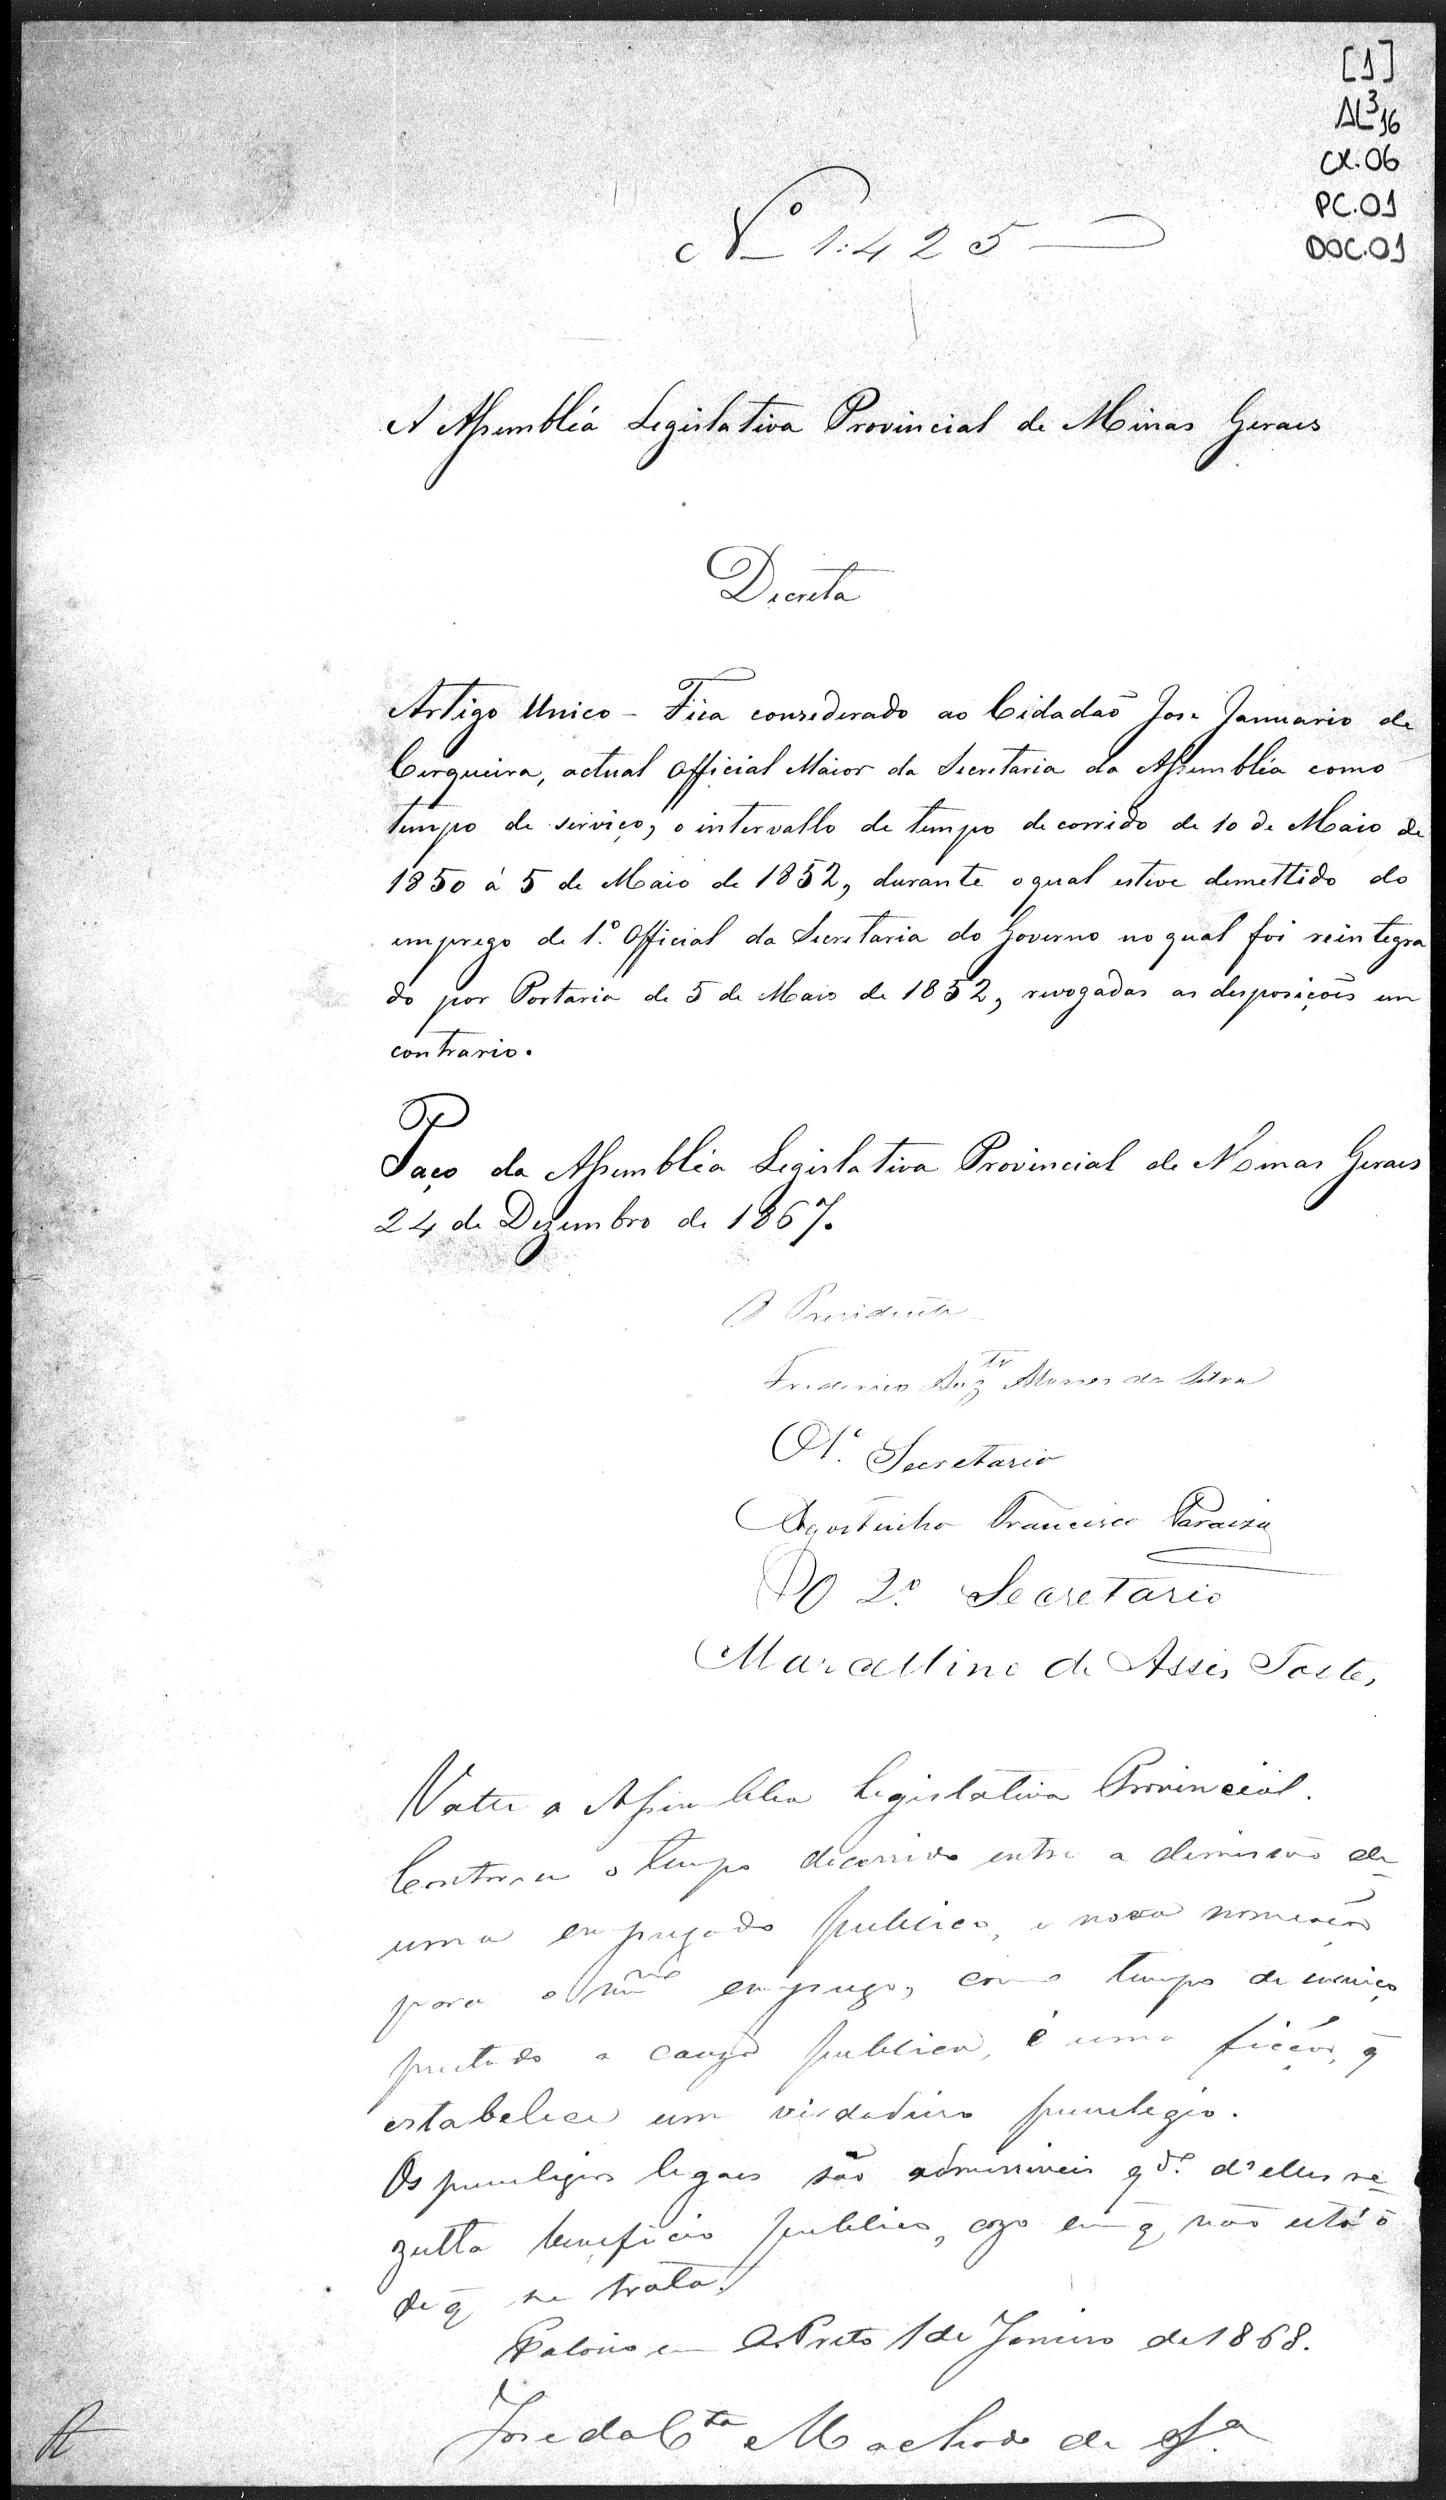 [1]
AL³16
CX.06
PC.01
DOC.01
Nº 1:425
A Assembléa Legislativa Provincial de Minas Geraes
Decreta
Artigo Unico - Fica considerado ao Cidadaõ José Januario de
Cerqueira, actual Official Maior da Secretaria da Assembléa como
tempo de serviço, o intervallo de tempo decorrido de 10 de Maio de
1850 á 5 de Maio de 1852, durante o qual esteve demettido do
emprego de 1º Official da Secretaria do Governo no qual foi reintegra
do por Portaria de 5 de Maio de 1852, revogadas as desposições em
contrario.
Paço da Assembléa Legislativa Provincial de Minas Geraes
24 de Dezembro de 1867.
O Presidente
Frederico Augto Alvares da Silva
O 1º Secretario
Agostinho Francisco Paraizo
O 2º Secretario
Marcellino de Assis Tostes
Volte a Assemblea Legislativa Provincial.
Contar-se o tempo decorrido entre a demissão de
um empregado publico, e nova nomeação
para o mmo emprego, como tempo de serviço
prestado a cauza publica, é uma ficção, q̃
estabelece um verdadeiro previlegio.
Os previlegios legaes são admissiveis qdo d'elles re-
zulta beneficio publico, cazo em q̃ não está o
de q̃ se trata.
Palacio em O. Preto 1 de Janeiro de 1868.
José da Cta Machado de Sª